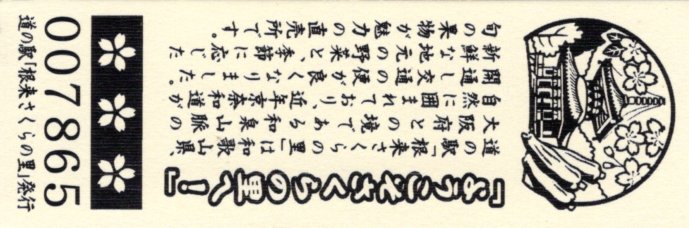 「ようこそさくらの里へ！」
道の駅「根来さくらの里」は和歌山県、
大阪府との境である和泉山脈の
自然に囲まれており、近年京奈和道が
開通し交通の便が良くなりました。
新鮮な地元の野菜と、季節に応じた
旬の果物が魅力の直売所です。
007865
道の駅「根来さくらの里」発行